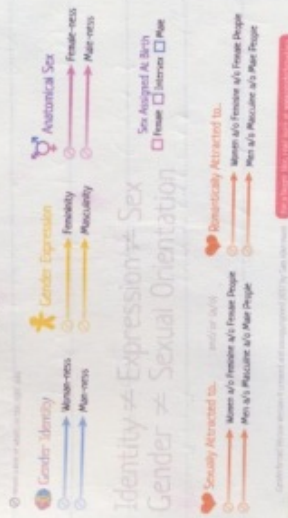 Gender Identity
Woman-ness
Man-ness
Gender Expression
Femininity
Masculinity
Anatomical Sex
Female-ness
Male-ness
Identity ≠ Expression ≠ Sex
Gender ≠ Sexual Orientation
Sex Assigned At Birth
Female Intersex Male
Sexually Attracted to..
Women a/o Feminine a/o Female People
Men a/o Masculine a/o Male People
and/or (a/o)
Romantically Attracted to..
Women a/o Feminine a/o Female People
Men a/o Masculine a/o Male People